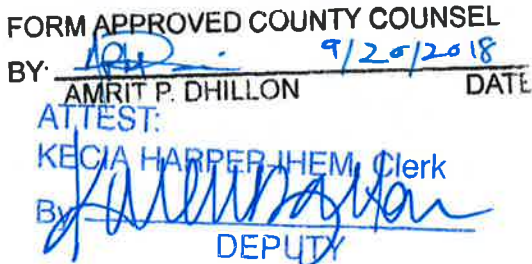 FORM APPROVED COUNTY COUNSEL
BY: 9/20/2018
AMRIT P. DHILLON DATE
ATTEST:
KECIA HARPER-IHEM, Clerk
By
DEPUTY